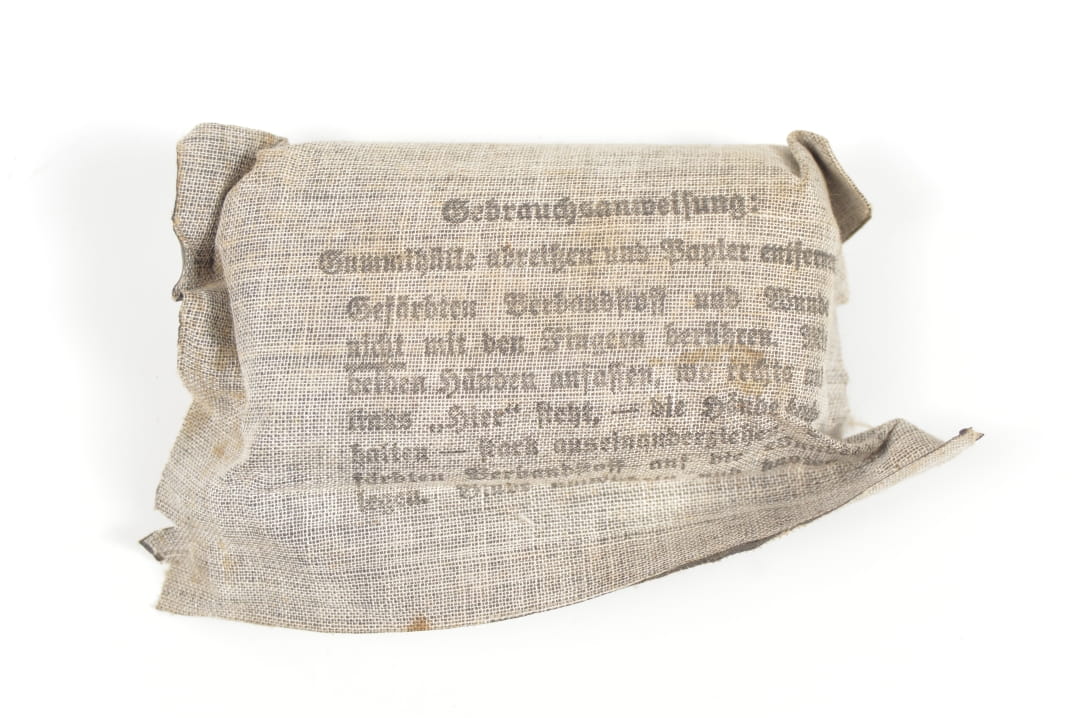 Gebrauchsanweisung:
Gummihülle abreißen und Papier entfernen
Gefärbten Verbandstoff und Wunde
nicht mit den Fingern berühren. Mi
beiden Händen anfassen, wo rechts u
links „Hier“ steht, — die Binde
halten — stark auseinanderziehe
färbten Verbandstoff auf die
legen. Binde